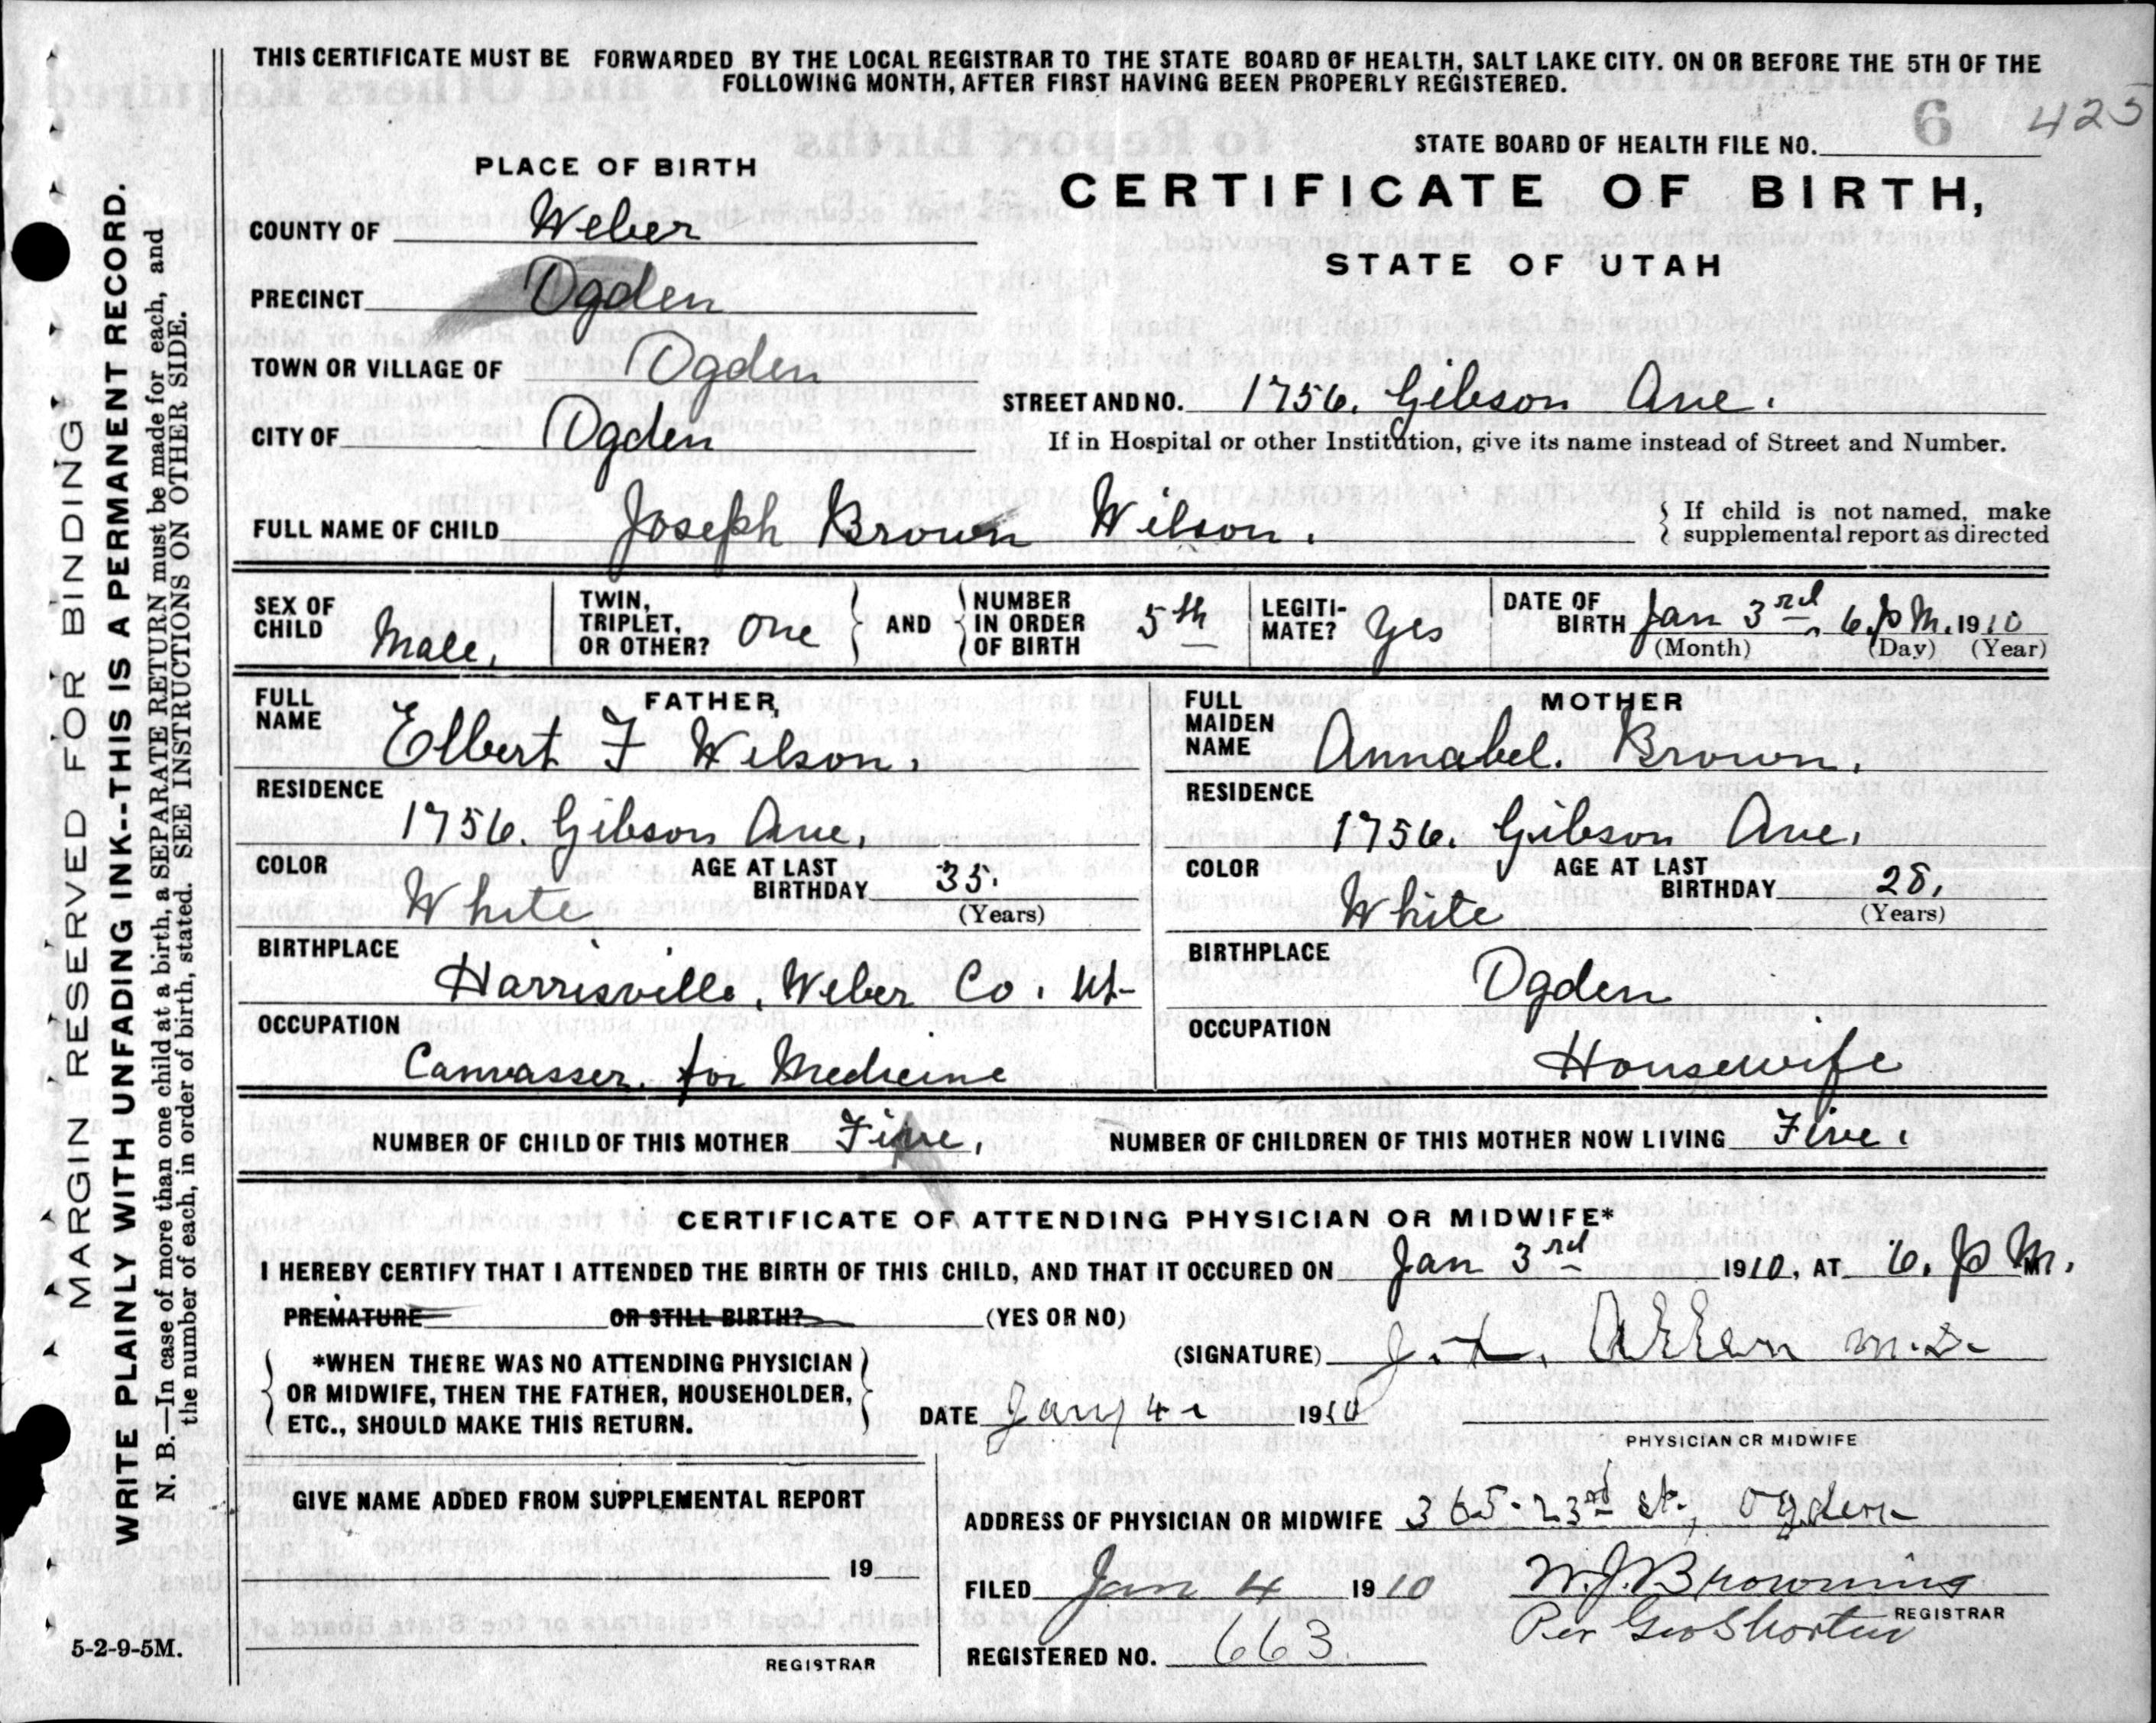 THIS CERTIFICATE MUST BE FORWARDED BY THE LOCAL REGISTRAR TO THE STATE BOARD OF HEALTH, SALT LAKE CITY. ON OR BEFORE THE 5TH OF THE
FOLLOWING MONTH, AFTER FIRST HAVING BEEN PROPERLY REGISTERED.
STATE BOARD OF HEALTH FILE NO. 6 425
PLACE OF BIRTH
CERTIFICATE OF BIRTH,
STATE OF UTAH
COUNTY OF Weber
PRECINCT Ogden
TOWN OR VILLAGE OF Ogden
CITY OF Ogden
STREET AND NO. 1756. Gibson Ave.
If in Hospital or other Institution, give its name instead of Street and Number.
FULL NAME OF CHILD Joseph Brown Wilson.
If child is not named, make
supplemental report as directed
SEX OF
CHILD Male,
TWIN,
TRIPLET,
OR OTHER? One
AND
NUMBER
IN ORDER
OF BIRTH 5th
LEGITI-
MATE? Yes
DATE OF
BIRTH Jan 3rd, 6. P M. 1910
(Month) (Day) (Year)
FATHER,
FULL
NAME Elbert F Wilson.
RESIDENCE
1756. Gibson Ave.
COLOR White
AGE AT LAST
BIRTHDAY 35.
(Years)
BIRTHPLACE
Harrisville, Weber Co. Ut-
OCCUPATION
Canvasser. for Medicine
MOTHER
FULL
MAIDEN
NAME Annabel. Brown.
RESIDENCE
1756. Gibson Ave.
COLOR White
AGE AT LAST
BIRTHDAY 28.
(Years)
BIRTHPLACE
Ogden
OCCUPATION
Housewife
NUMBER OF CHILD OF THIS MOTHER Five. NUMBER OF CHILDREN OF THIS MOTHER NOW LIVING Five.
CERTIFICATE OF ATTENDING PHYSICIAN OR MIDWIFE*
I HEREBY CERTIFY THAT I ATTENDED THE BIRTH OF THIS CHILD, AND THAT IT OCCURED ON Jan 3rd 1910, AT 6. P M.
PREMATURE OR STILL BIRTH? (YES OR NO)
(SIGNATURE) Allen M.D.
*WHEN THERE WAS NO ATTENDING PHYSICIAN
OR MIDWIFE, THEN THE FATHER, HOUSEHOLDER,
ETC., SHOULD MAKE THIS RETURN.
DATE Jany 4- 1910
PHYSICIAN OR MIDWIFE
GIVE NAME ADDED FROM SUPPLEMENTAL REPORT
19
REGISTRAR
ADDRESS OF PHYSICIAN OR MIDWIFE 365-23rd St, Ogden
FILED Jan 4 1910 W.J. Browning
REGISTRAR
Per Geo Shorten
REGISTERED NO. 663.
MARGIN RESERVED FOR BINDING
WRITE PLAINLY WITH UNFADING INK--THIS IS A PERMANENT RECORD.
N. B.—In case of more than one child at a birth, a SEPARATE RETURN must be made for each, and
the number of each, in order of birth, stated. SEE INSTRUCTIONS ON OTHER SIDE.
5-2-9-5M.